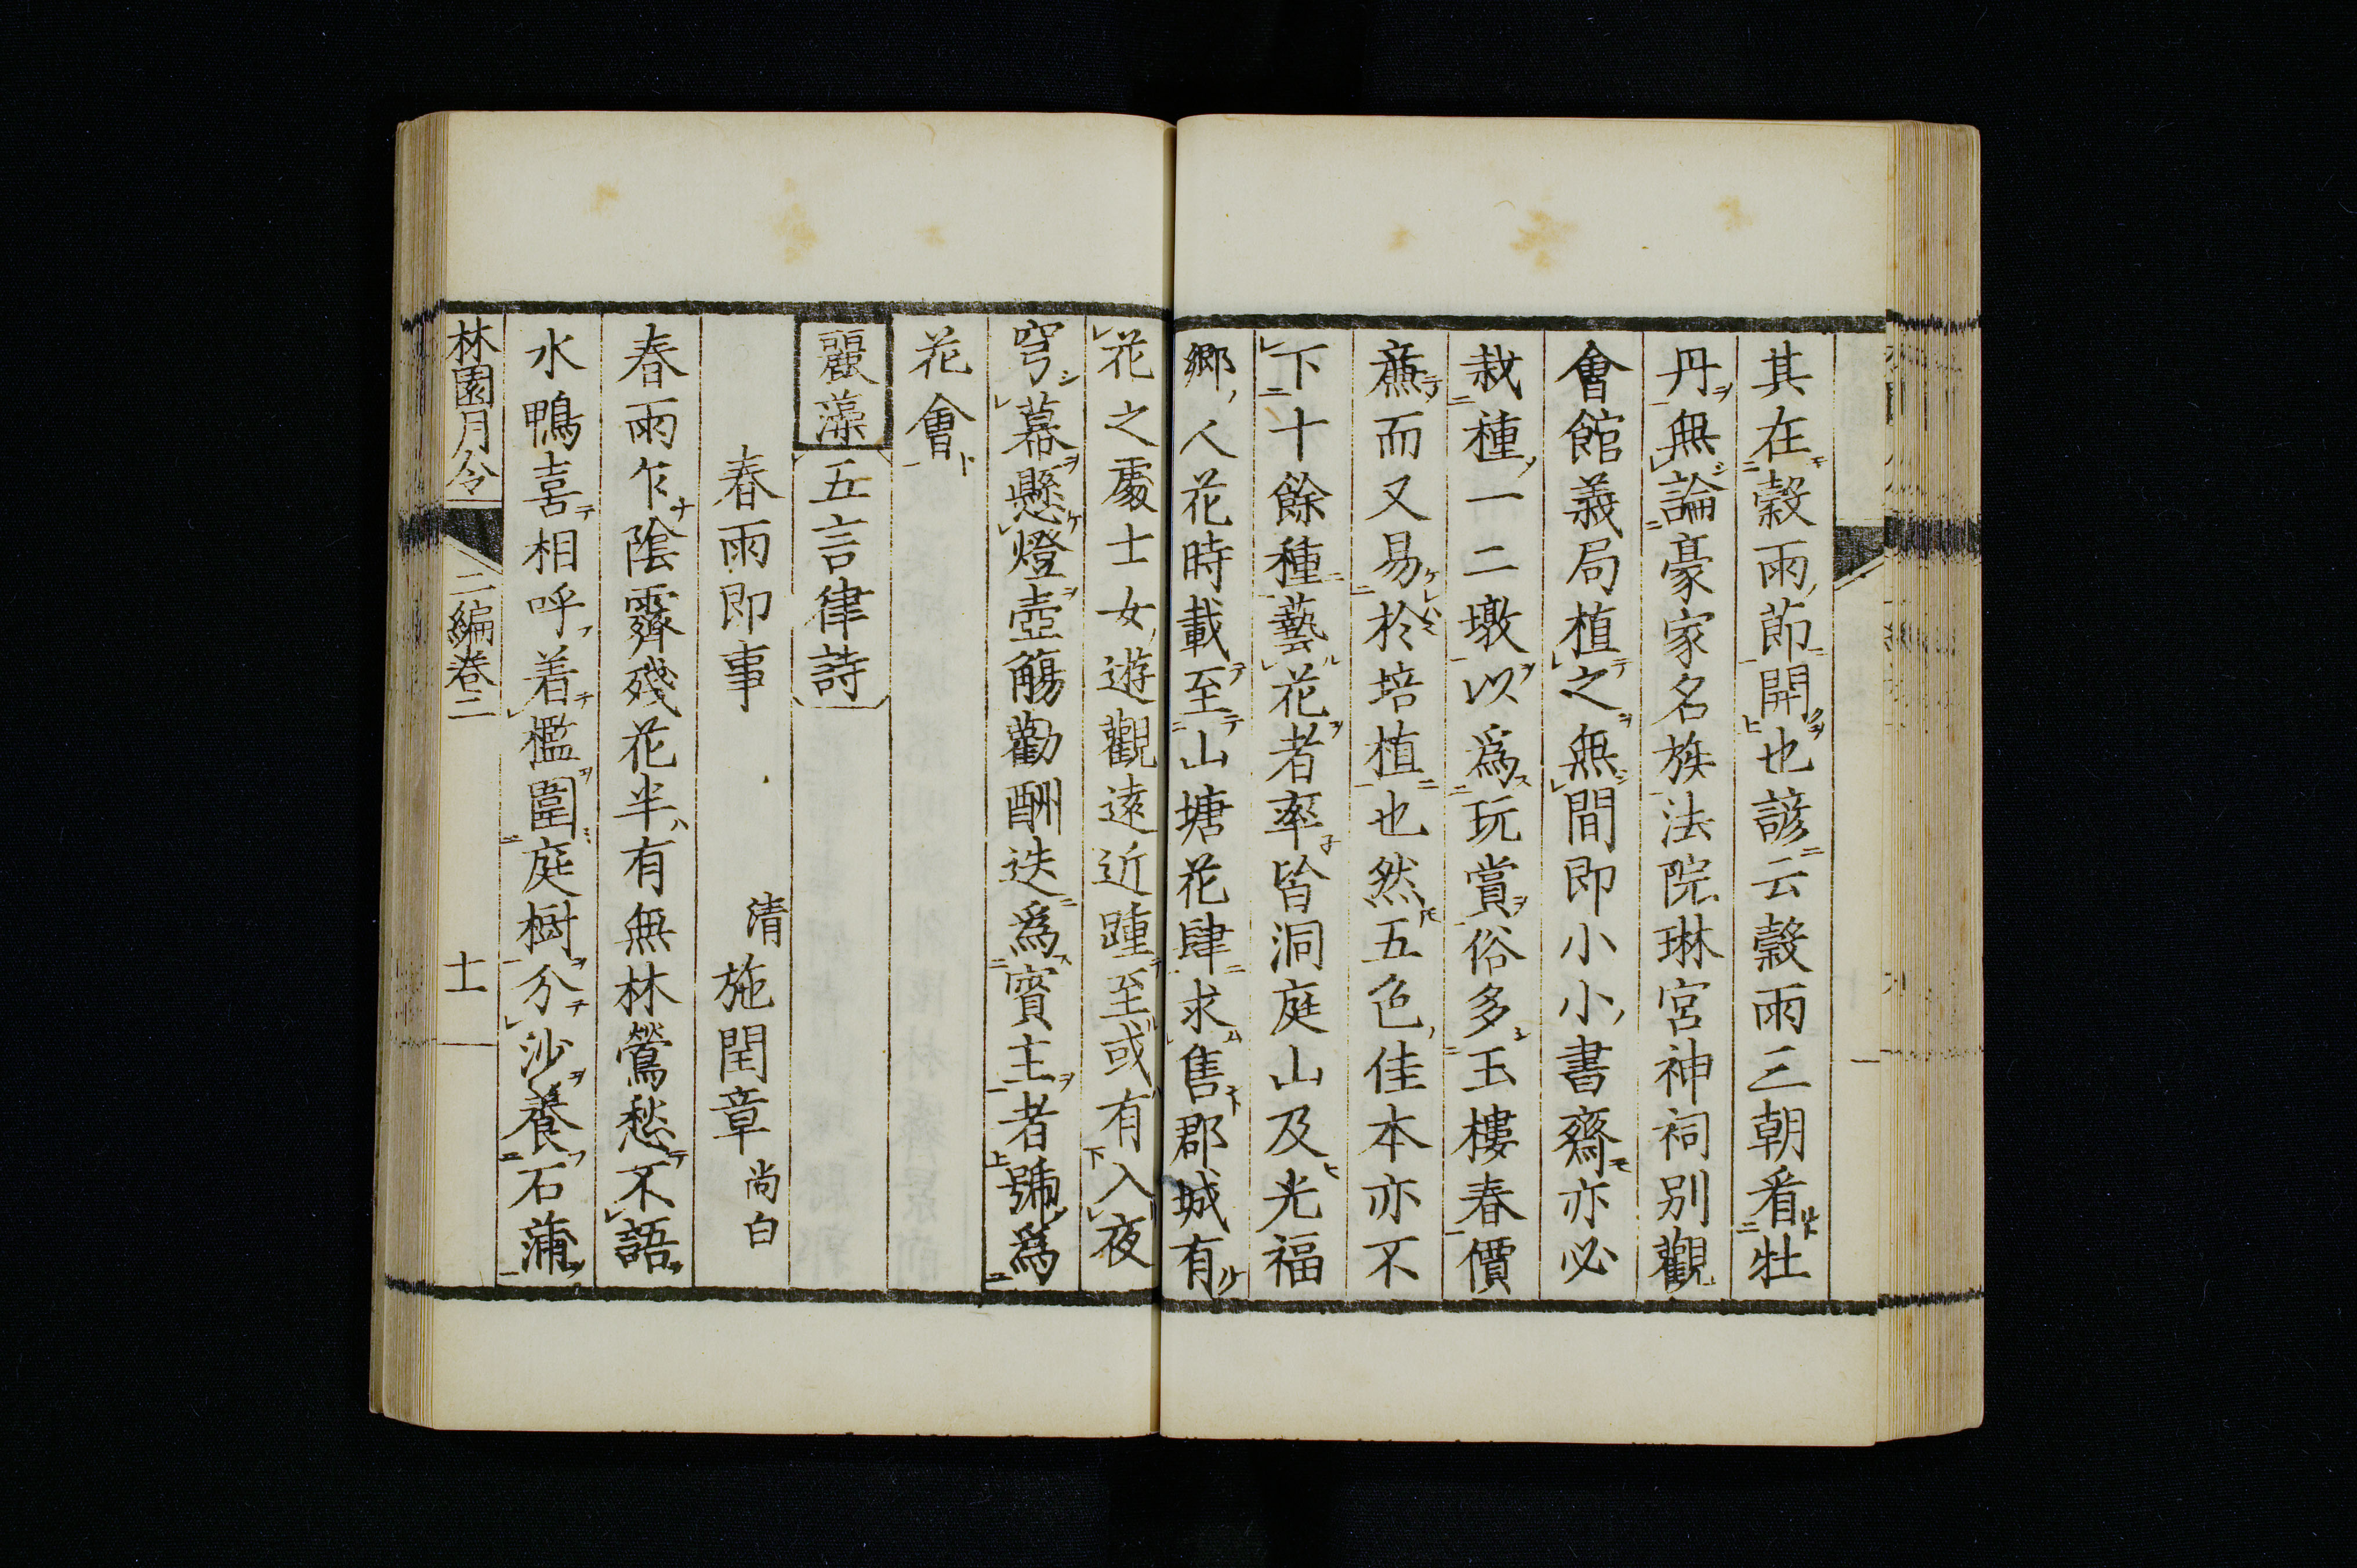 其在穀雨節開也諺云穀雨三朝看牡
丹無論豪家名族法院琳宮神祠別觀
會館義局植之無間即小小書齋亦必
栽種一二墩以爲玩賞俗多玉樓春價
廉而又易於培植也然五色佳本亦不
下十餘種藝花者率皆洞庭山及光福
郷人花時載至山塘花肆求售郡城有
花之處士女遊觀遠近踵至或有入夜
穹幕懸燈壺觴勸酬迭爲賓主者號爲
花會
麗藻 五言律詩
春雨即事 清 施閏章 尚白
春雨乍陰霽殘花半有無林鶯愁不語
水鴨喜相呼着檻圍庭樹分沙養石蒲
林園月令 二編卷二 十一